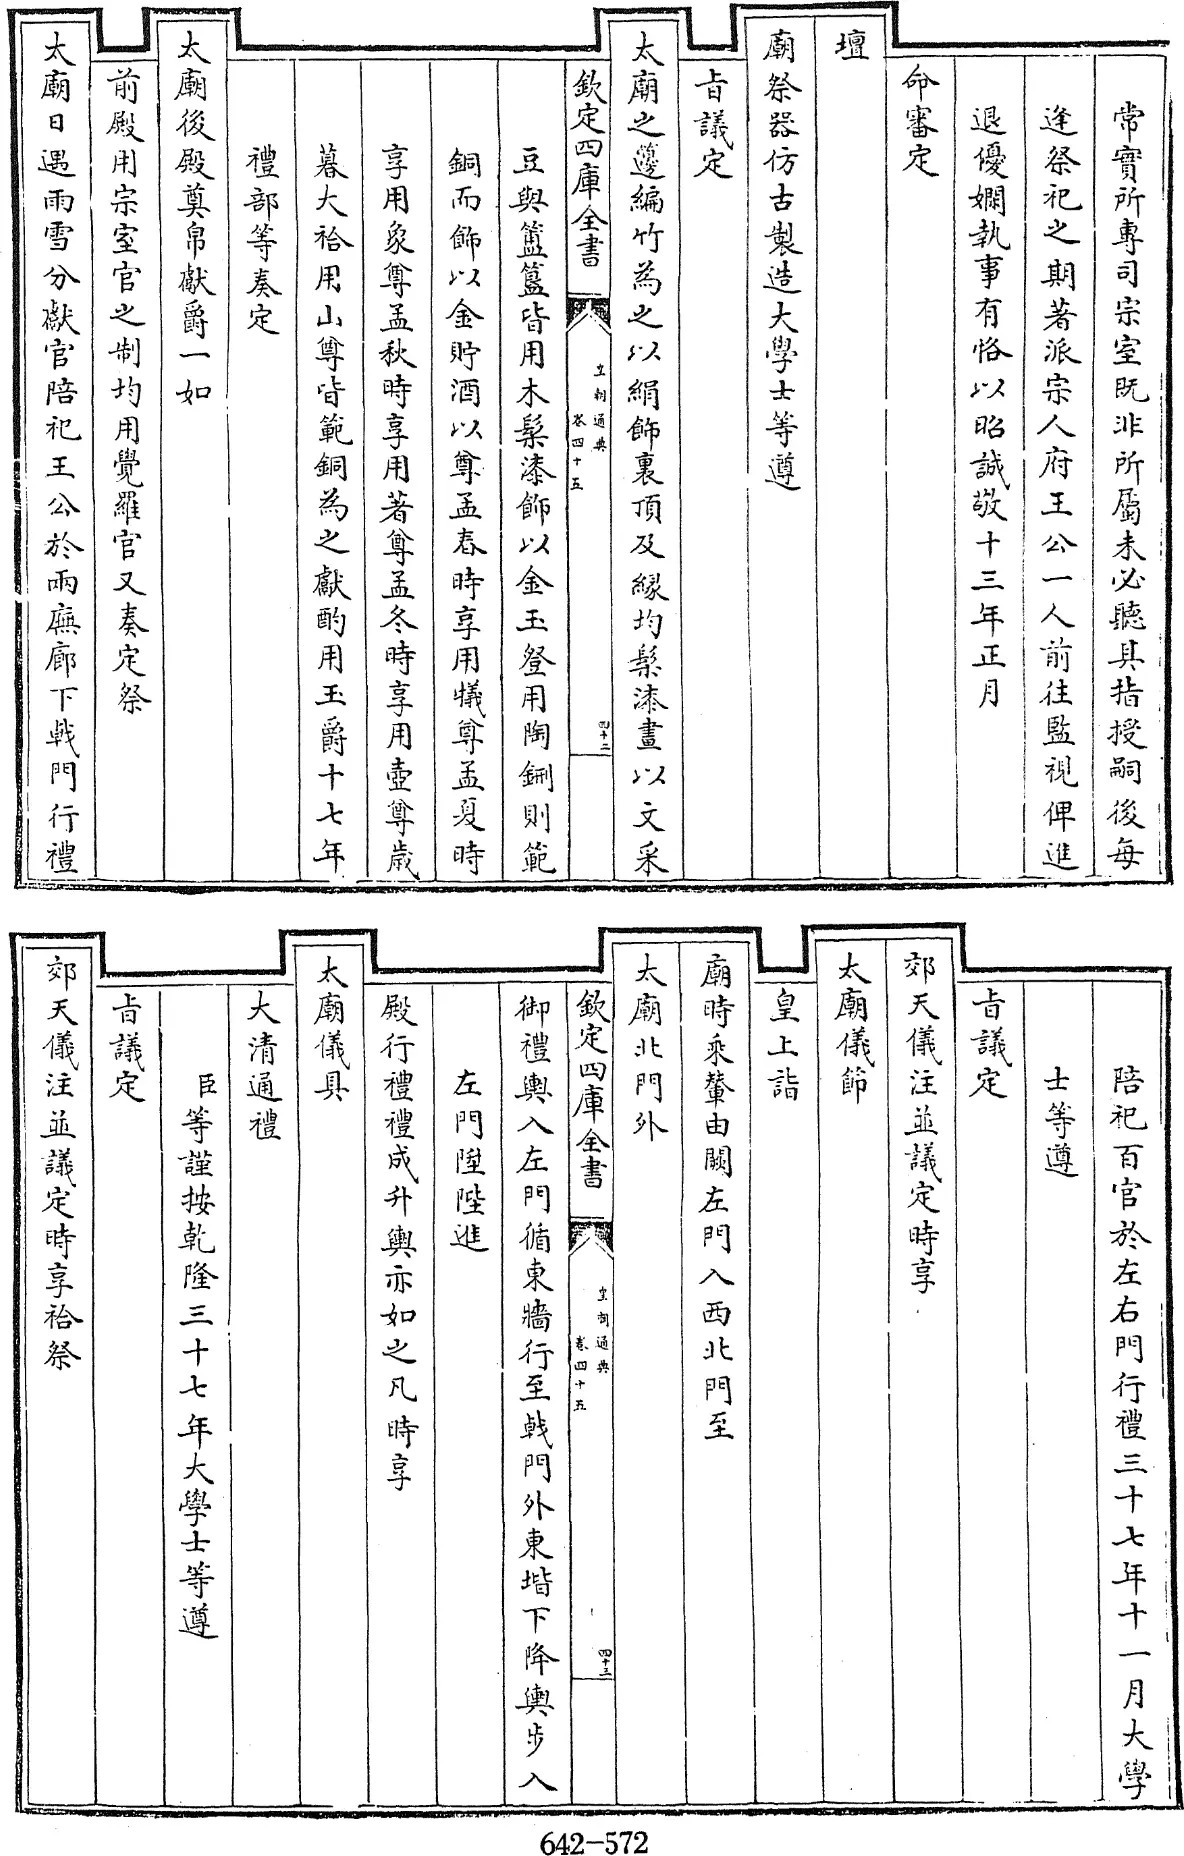 常實所專司宗室既非所屬未必聽其指授嗣後每
逢祭祀之期著派宗人府王公一人前往監視俾進
退優嫻執事有恪以昭誠敬十三年正月
命審定
壇
廟祭器仿古製造大學士等遵
旨議定
太廟之籩編竹為之以絹飾裏頂及緣均髹漆畫以文采
欽定四庫全書
皇朝通典
卷四十五
四十二
豆與簠簋皆用木髹漆飾以金玉登用陶鉶則範
銅而飾以金貯酒以尊孟春時享用犧尊孟夏時
享用象尊孟秋時享用著尊孟冬時享用壺尊歲
暮大祫用山尊皆範銅為之獻酌用玉爵十七年
禮部等奏定
太廟後殿奠帛獻爵一如
前殿用宗室官之制均用覺羅官又奏定祭
太廟日遇雨雪分獻官陪祀王公於兩廡廊下戟門行禮
陪祀百官於左右門行禮三十七年十一月大學
士等遵
旨議定
郊天儀注並議定時享
太廟儀節
皇上詣
廟時乘輦由闕左門入西北門至
太廟北門外
欽定四庫全書
皇朝通典
卷四十五
四十三
御禮輿入左門循東牆行至戟門外東堦下降輿步入
左門陞陛進
殿行禮禮成升輿亦如之凡時享
太廟儀具
大清通禮
臣等謹按乾隆三十七年大學士等遵
旨議定
郊天儀注並議定時享祫祭
642-572